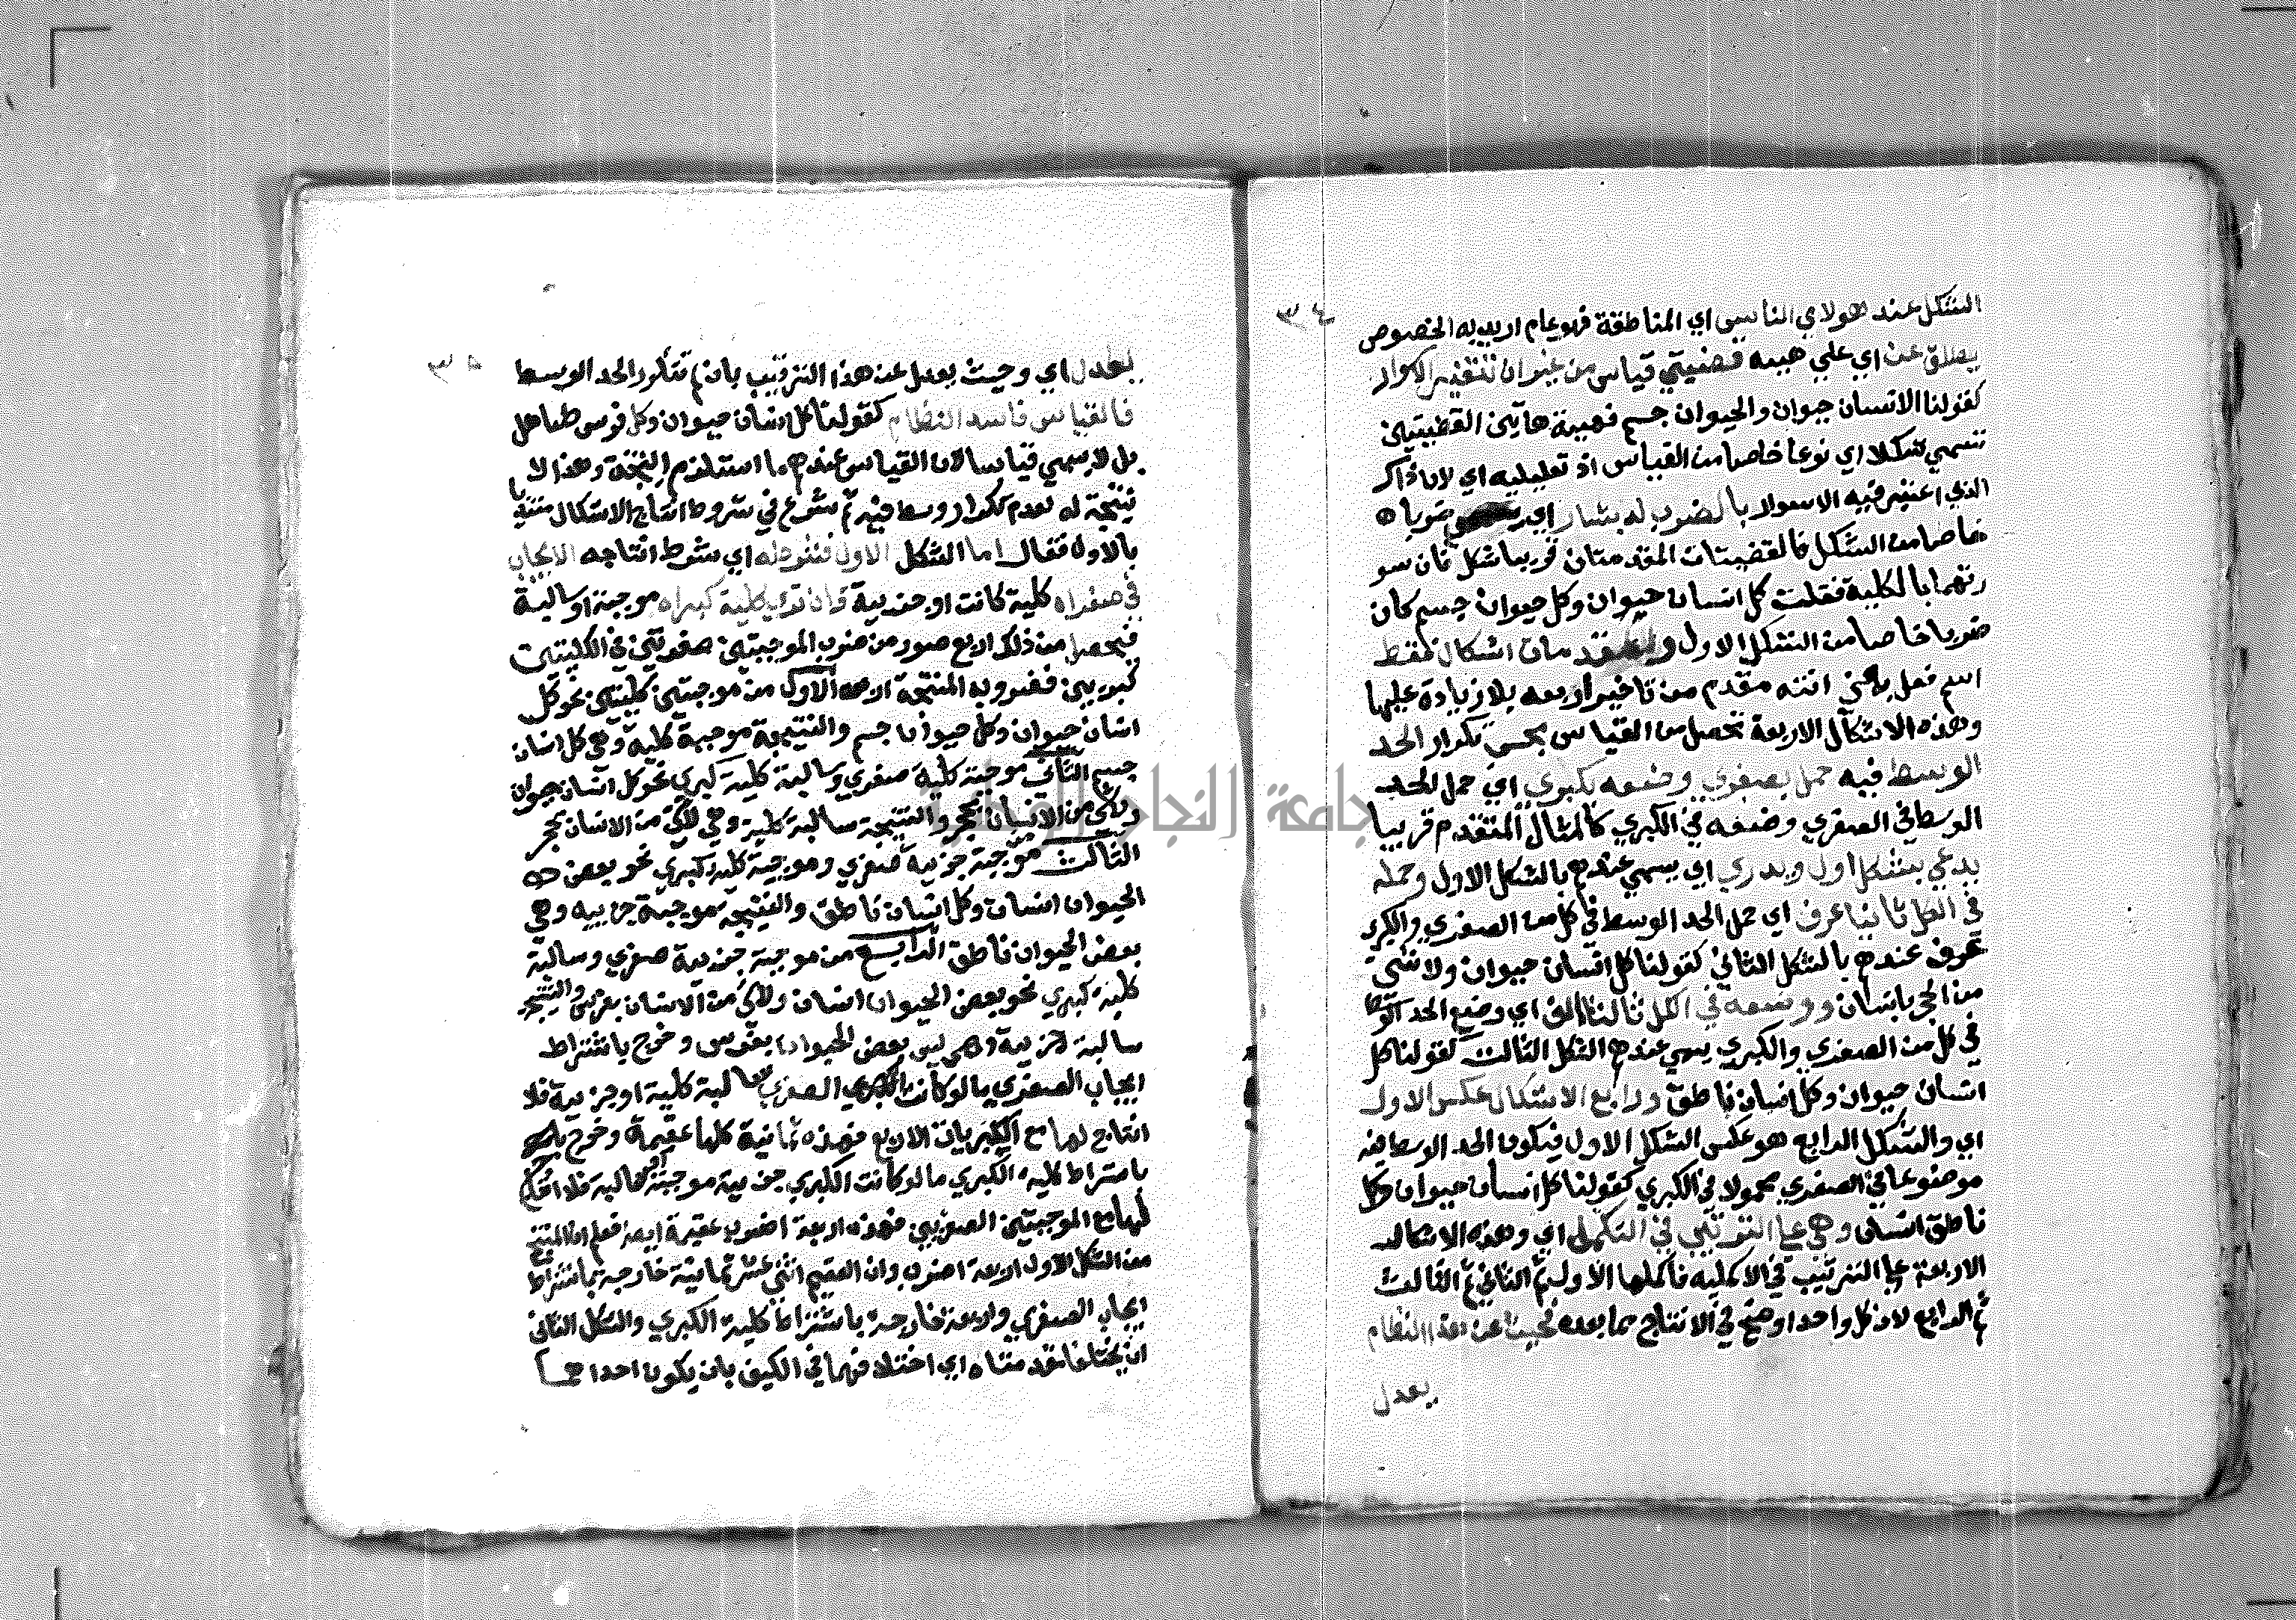 ٣٤
الشكل عند هولاي الناس اي المناطقة فهو عام اريد به الخصوص
يطلق عن اي علي هيئة قضيتي قياس من غيران تعتبر الاسوار
كقولنا الانسان حيوان والحيوان جسم فهيئة هاتين القضيتين
تسمي شكلا اي نوعا خاصا من القياس اذ تعليليه اي لان ذاك
الذي اعتبر فيه الاسوار بالضرب له يشار اي ضربا
خاصا من الشكل فالقضيتان المقدمتان قريبا شكل فان سو
رتهما بالكلية فقلت كل انسان حيوان وكل حيوان جسم كان
ضربا خاصا من الشكل الاول وللمقدمات اشكال فقط
اسم فعل بمعني انته مقدم من تاخير اربعه بلا زيادة عليها
وهذه الاشكال الاربعة تحصل من القياس بحسب تكرار الحد
الوسط فيه حمل بصغري وضعه بكبري اي حمل الحد
الوسط في الصغري وضعه في الكبري كالمثال المتقدم قريبا
يدعي بشكل اول ويدري اي يسمي عندهم بالشكل الاول وحمله
في الكل ثانيا عرف اي حمل الحد الوسط في كل من الصغري والكبري
عرف عندهم بالشكل الثاني كقولنا كل انسان حيوان ولا شي
من الحجر بانسان ووضعه في الكل ثالثا الف اي وضع الحد الوسط
في كل من الصغري والكبري يسمي عندهم الشكل الثالث كقولنا كل
انسان حيوان وكل انسان ناطق ورابع الاشكال عكس الاول
اي والشكل الرابع هو عكس الشكل الاول فيكون الحد الوسط فيه
موضوعا في الصغري محمولا في الكبري كقولنا كل انسان حيوان وكل
ناطق انسان وهي علي الترتيب في التكمل اي وهذه الاشكال
الاربعة علي الترتيب في الاكمليه فاكملها الاول ثم الثاني ثم الثالث
ثم الرابع لان كل واحد اوضح في الانتاج مما بعده فحيث عن هذا النظام
يعدل
٣٥
يعدل اي وحيث يعدل عن هذا الترتيب بان لم تتكرر الحد الوسط
فالقياس فاسد النظام كقولنا كل انسان حيوان وكل فرس صاهل
بل لا يسمي قياسا لان القياس عندهم ما استلزم النتيجة وهذا لا
نتيجة له لعدم تكرار وسط فيه ثم شرع في شروط انتاج الاشكال مبتديا
بالاول فقال اما الشكل الاول فشرطه اي شرط انتاجه الايجاب
في صغراه كلية كانت او جزيية وان تري كلية كبراه موجبة او سالبة
فيحصل من ذلك اربع صور من ضرب الموجبتين صغرتين في الكليتين
كبريين فضروبه المنتجة اربعه الاول من موجبتين كليتين نحو كل
انسان حيوان وكل حيوان جسم والنتيجة موجبة كلية وهي كل انسان
جسم الثاني موجبة كلية صغري وسالبة كلية كبري نحو كل انسان حيوان
ولا شي من الانسان بحجر والنتيجة سالبة كلية وهي لا شي من الانسان بحجر
الثالث موجبة جزيية صغري وموجبة كلية كبري نحو بعض
الحيوان انسان وكل انسان ناطق والنتيجة موجبة جزييه وهي
بعض الحيوان ناطق الرابع من موجبة جزيية صغري وسالبة
كلية كبري نحو بعض الحيوان انسان ولا شي من الانسان بفرس والنتيجة
سالبة جزيية وهي ليس بعض الحيوان بفرس وخرج باشتراط
ايجاب الصغري ما لو كانت الصغري سالبة كلية او جزيية فلا
انتاج لها مع الكبريات الاربع فهذه ثمانية كلها عقيمة وخرج
باشتراط كلية الكبري ما لو كانت الكبري جزيية موجبة او سالبة فلا انتاج
لها مع الموجبتين الصغريين فهذه اربعة اضرب عقيمة ايضا فعلم ان المنتج
من الشكل الاول اربعة اضرب وان العقيم اثني عشر ثمانية خارجة باشتراط
ايجاب الصغري واربعة خارجة باشتراط كلية الكبري والشكل الثاني
ان يختلفا مقدمتاه اي اختلافهما في الكيف بان يكون احداهما
جامعة النجاح الوطنية